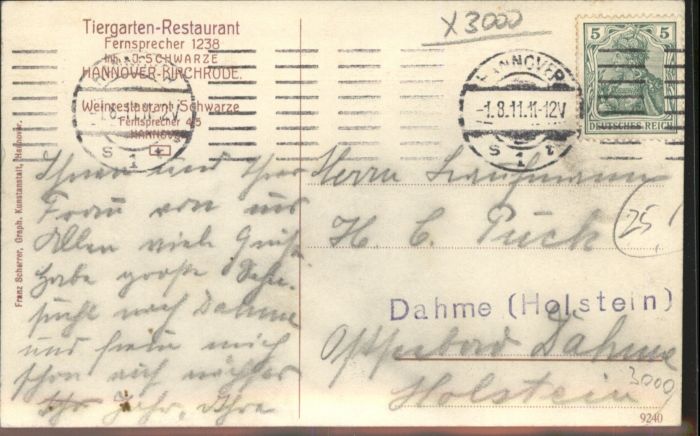 Tiergarten-Restaurant
Fernsprecher 1238
Inh. O. SCHWARZE
HANNOVER-KIRCHRODE.
Weinrestaurant Schwarze
Fernsprecher 45
HANNOVER
X3000
HANNOVER
-1.8.11.11-12V
S 1 t
5 5
DEUTSCHES REICH
Franz Scherrer, Graph. Kunstanstalt, Hannover.
Ihnen und Ihrer
Frau von uns
Allen viele Grüße
habe große Sehn-
sucht nach Dahme
und freue mich
schon auf nächstes
Jahr, Ihre
Herrn Kaufmann
H. C. Puck
25
Dahme (Holstein)
Ostseebad Dahme
Holstein
3000
9240